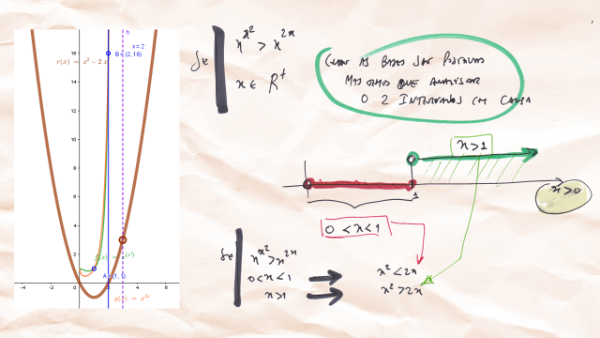 x = 2
B = (2, 16)
r(x) = x² − 2x
16
14
12
10
8
6
4
2
A = (1, 1)
-4
-2
0
4
6
Se
x^x² > x^2x
x ∈ R⁺
COMO AS BASES SÃO POSITIVAS
MAS TEMOS QUE ANALISAR
O 2 INTERVALOS EM CAUSA
x > 1
1
x > 0
0 < x < 1
Se
x^x² > x^2x
0 < x < 1
x² < 2x
x > 1
x² > 2x